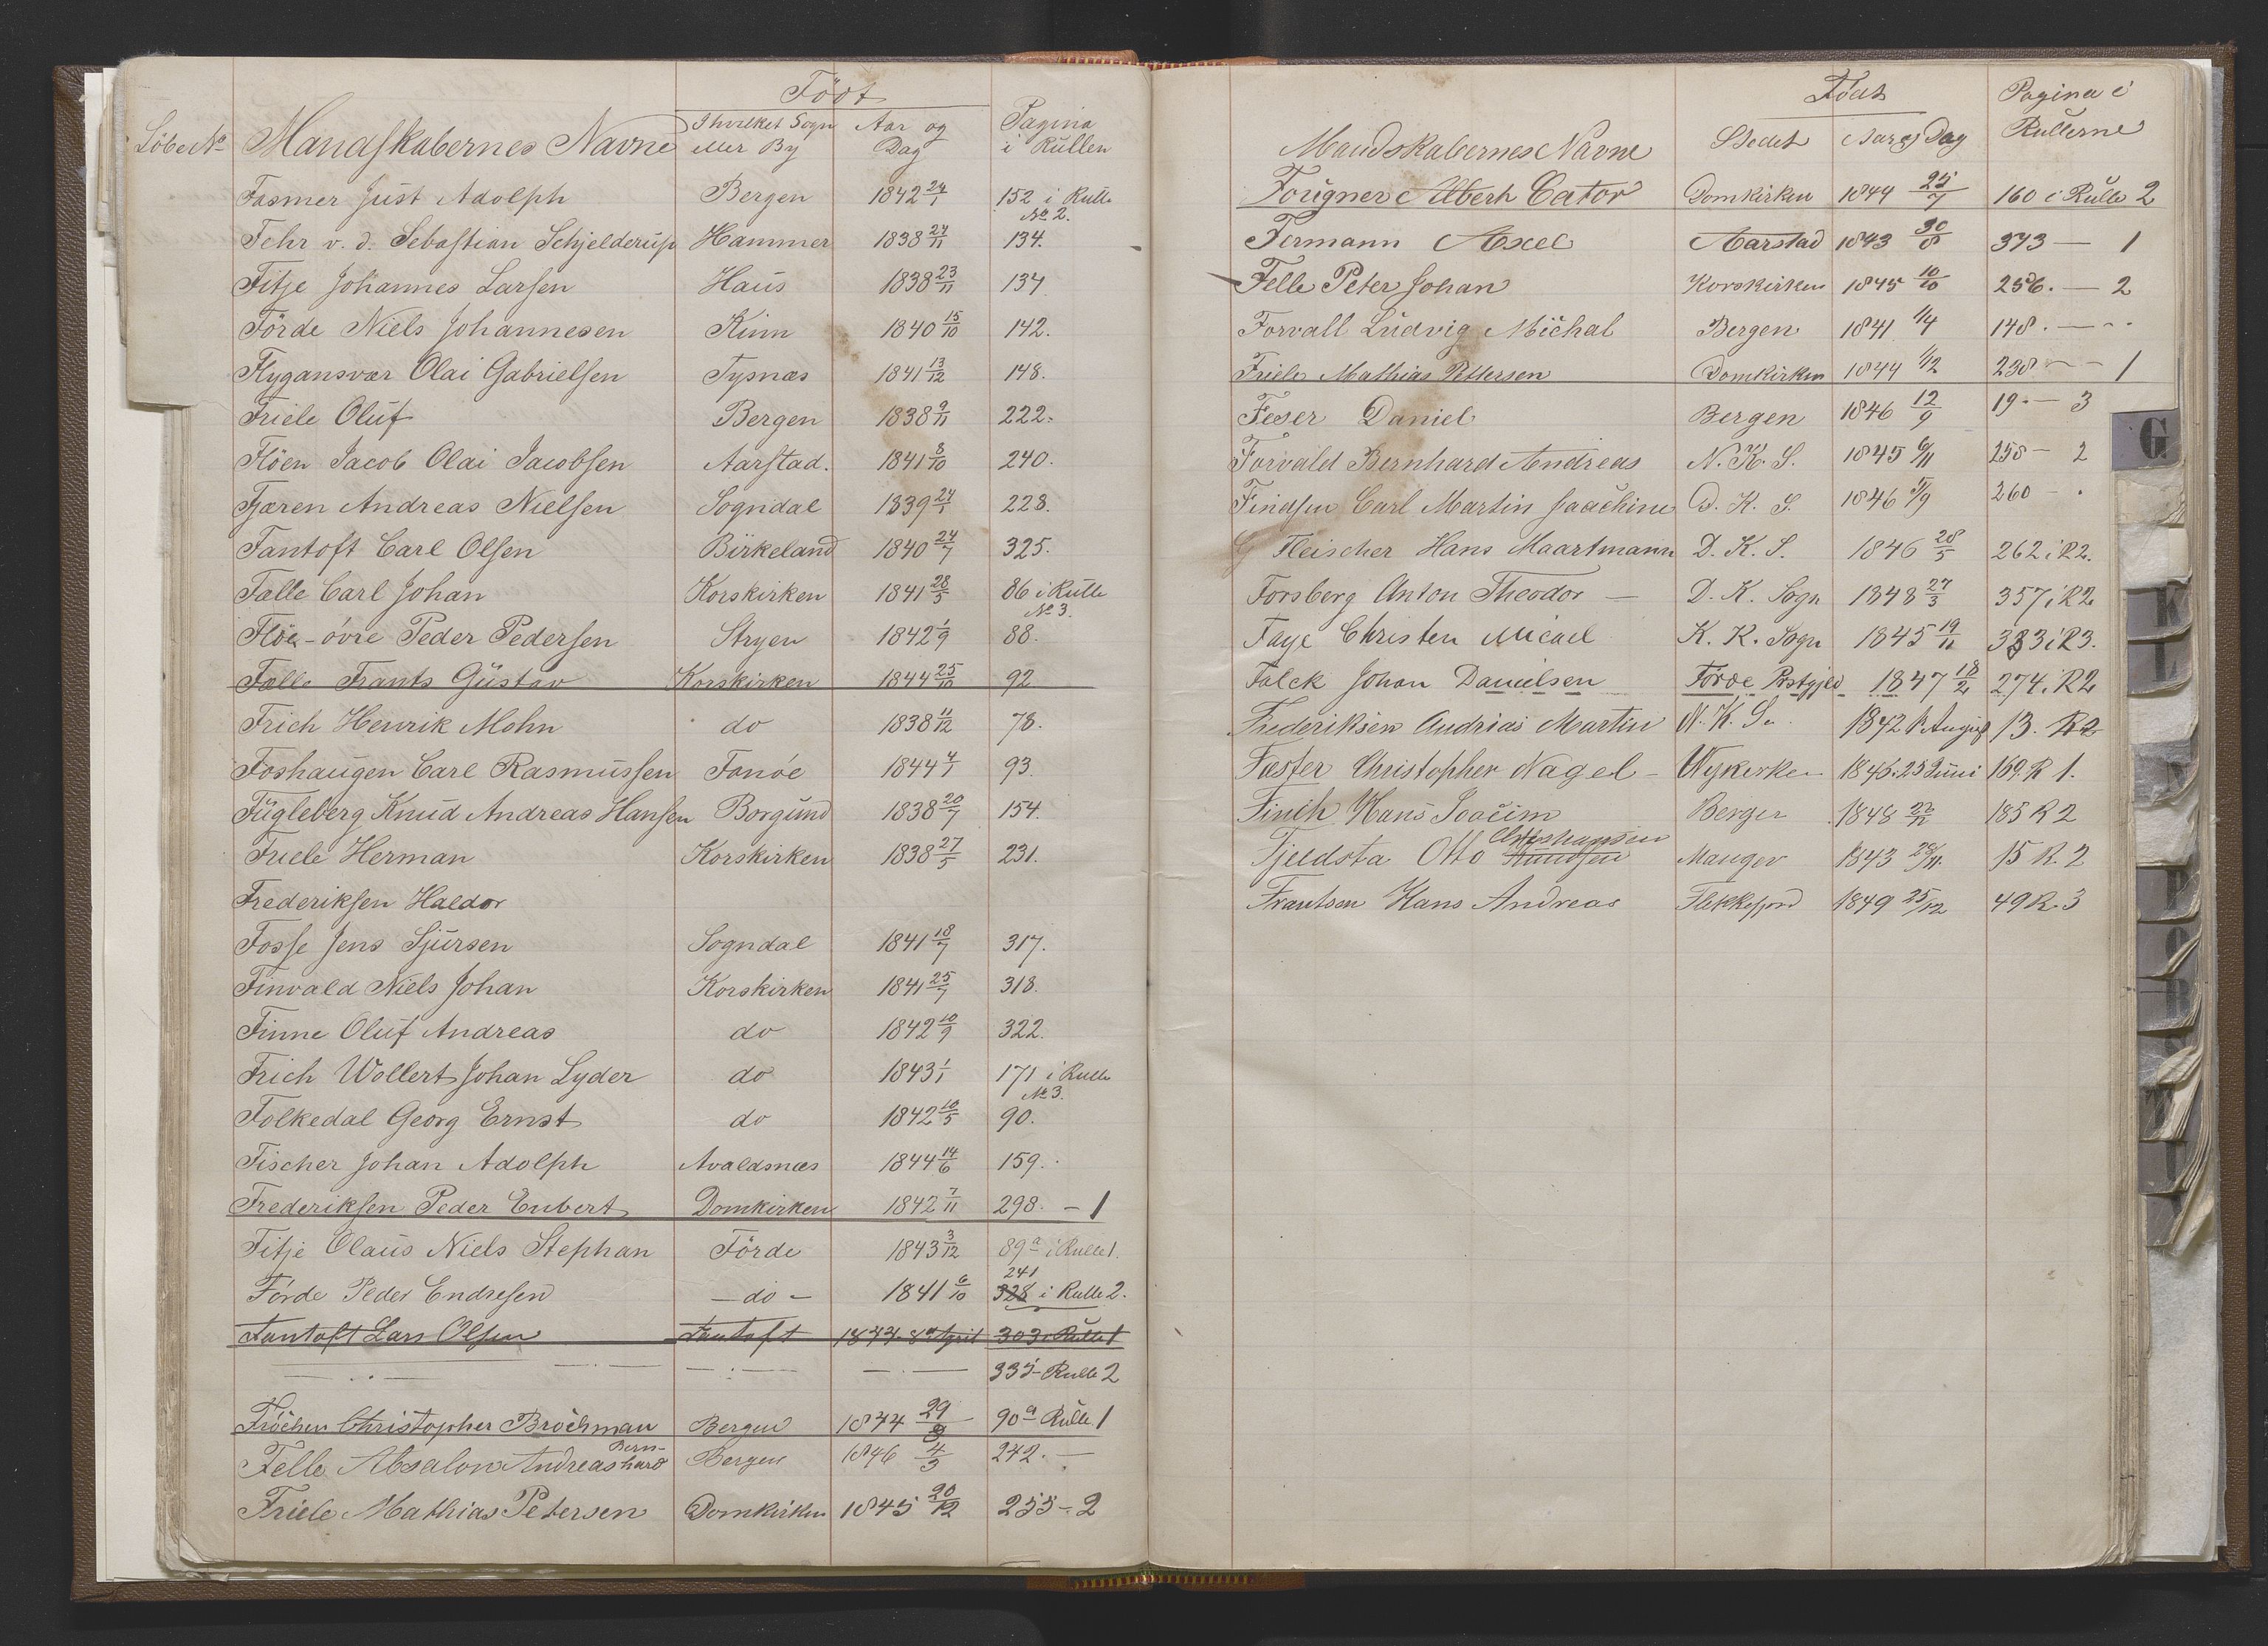 Födt
Löbe No Mandskabernes Navne I hvilket Sogn eller By Aar og Dag Pagina i Rullen
Fasmer Just Adolph Bergen 1842 24/1 152 i Rulle No 2.
Fehr v. d. Sebastian Schjelderup Hammer 1838 27/11 134.
Fitje Johannes Larsen Haus 1838 23/11 137
Förde Niels Johannesen Kinn 1840 15/10 142.
Flygansvær Olai Gabrielsen Tysnæs 1841 13/12 148.
Friele Oluf Bergen 1838 9/11 222.
Flöen Jacob Olai Jacobsen Aarstad. 1841 8/10 240.
Fjæren Andreas Nielsen Sogndal 1839 24/1 228.
Fantoft Carl Olsen Birkeland 1840 24/7 325.
Falle Carl Johan Korskirken 1841 28/5 86 i Rulle No 3.
Flöe-övre Peder Pedersen Stryen 1842 1/9 88.
Falle Frants Gustav Korskirken 1844 25/10 92
Frich Henrik Mohn do 1838 11/12 78.
Foshaugen Carl Rasmussen Fanöe 1844 4/1 93.
Fugleberg Knud Andreas Hansen Borgund 1838 20/7 154.
Friele Herman Korskirken 1838 27/5 231.
Frederiksen Haldor
Fosse Jens Sjursen Sogndal 1841 18/7 317.
Finvald Niels Johan Korskirken 1841 25/7 318.
Finne Oluf Andreas do 1842 10/9 322.
Frich Wollert Johan Lyder do 1843 1/1 171 i Rulle No 3.
Folkedal Georg Ernst do 1842 10/5 90.
Fischer Johan Adolph Avaldsnæs 1844 14/6 159.
Frederiksen Peder Enbert Domkirken 1842 7/11 298. - 1
Fitje Claus Niels Stephan Förde 1843 3/12 89a i Rulle 1.
Förde Peder Endresen - do - 1841 6/10 241 328 i Rulle 2.
Fantoft Lars Olsen Fantoft 1844 8 April 303 i Rulle 1
335 - Rulle 2
Fröchen Christopher Bröchman Bergen 1844 29/9 90a Rulle 1
Felle Absalon Andreas Bernhard Bergen 1846 4/3 242. —
Friele Mathias Petersen Domkirken 1845 20/12 255 - 2
Födt
Mandskabernes Navne Stedet Aar og Dag Pagina i Rullerne
Fougner Albert Cator Domkirken 1844 25/7 160 i Rulle 2
Fermann Axel Aarstad 1843 30/8 373 — 1
Felle Peter Johan Korskirken 1845 10/10 256. — 2
Forvall Ludvig Michal Bergen 1841 1/4 148. —
Friele Mathias Pettersen Domkirken 1844 1/12 238 — 1
Feser Daniel Bergen 1846 12/9 19. — 3
Forvald Bernhard Andreas N. K. S. 1845 6/11 258 — 2
Findsen Carl Martin Joachim D. K. S. 1846 5/9 260 - .
Fleischer Hans Maartmann D. K. S. 1846 28/5 262 i R2.
Forsberg Anton Theodor — D. K. Sogn 1848 27/3 357 i R2
Faye Christen Micael K. K. Sogn 1845 19/11 383 i R3.
Falck Johan Danielsen Förde Prstgjeld 1847 18/2 274 i R2
Frederiksen Andrias Martin N. K. S. 1842 1 August 13. R2
Fæster Christopher Nagel - Nykirken 1846. 25 Juni 169. R 1.
Finck Hans Joacim Bergen 1848 22/11 185 R 2
Fjeldsta Otto Knudsen Christiansen Manger 1843 28/11. 15 R. 2
Frantsen Hans Andreas Flekkefjord 1849 25/12 49 R. 3
G
K
L
N
P
R
T